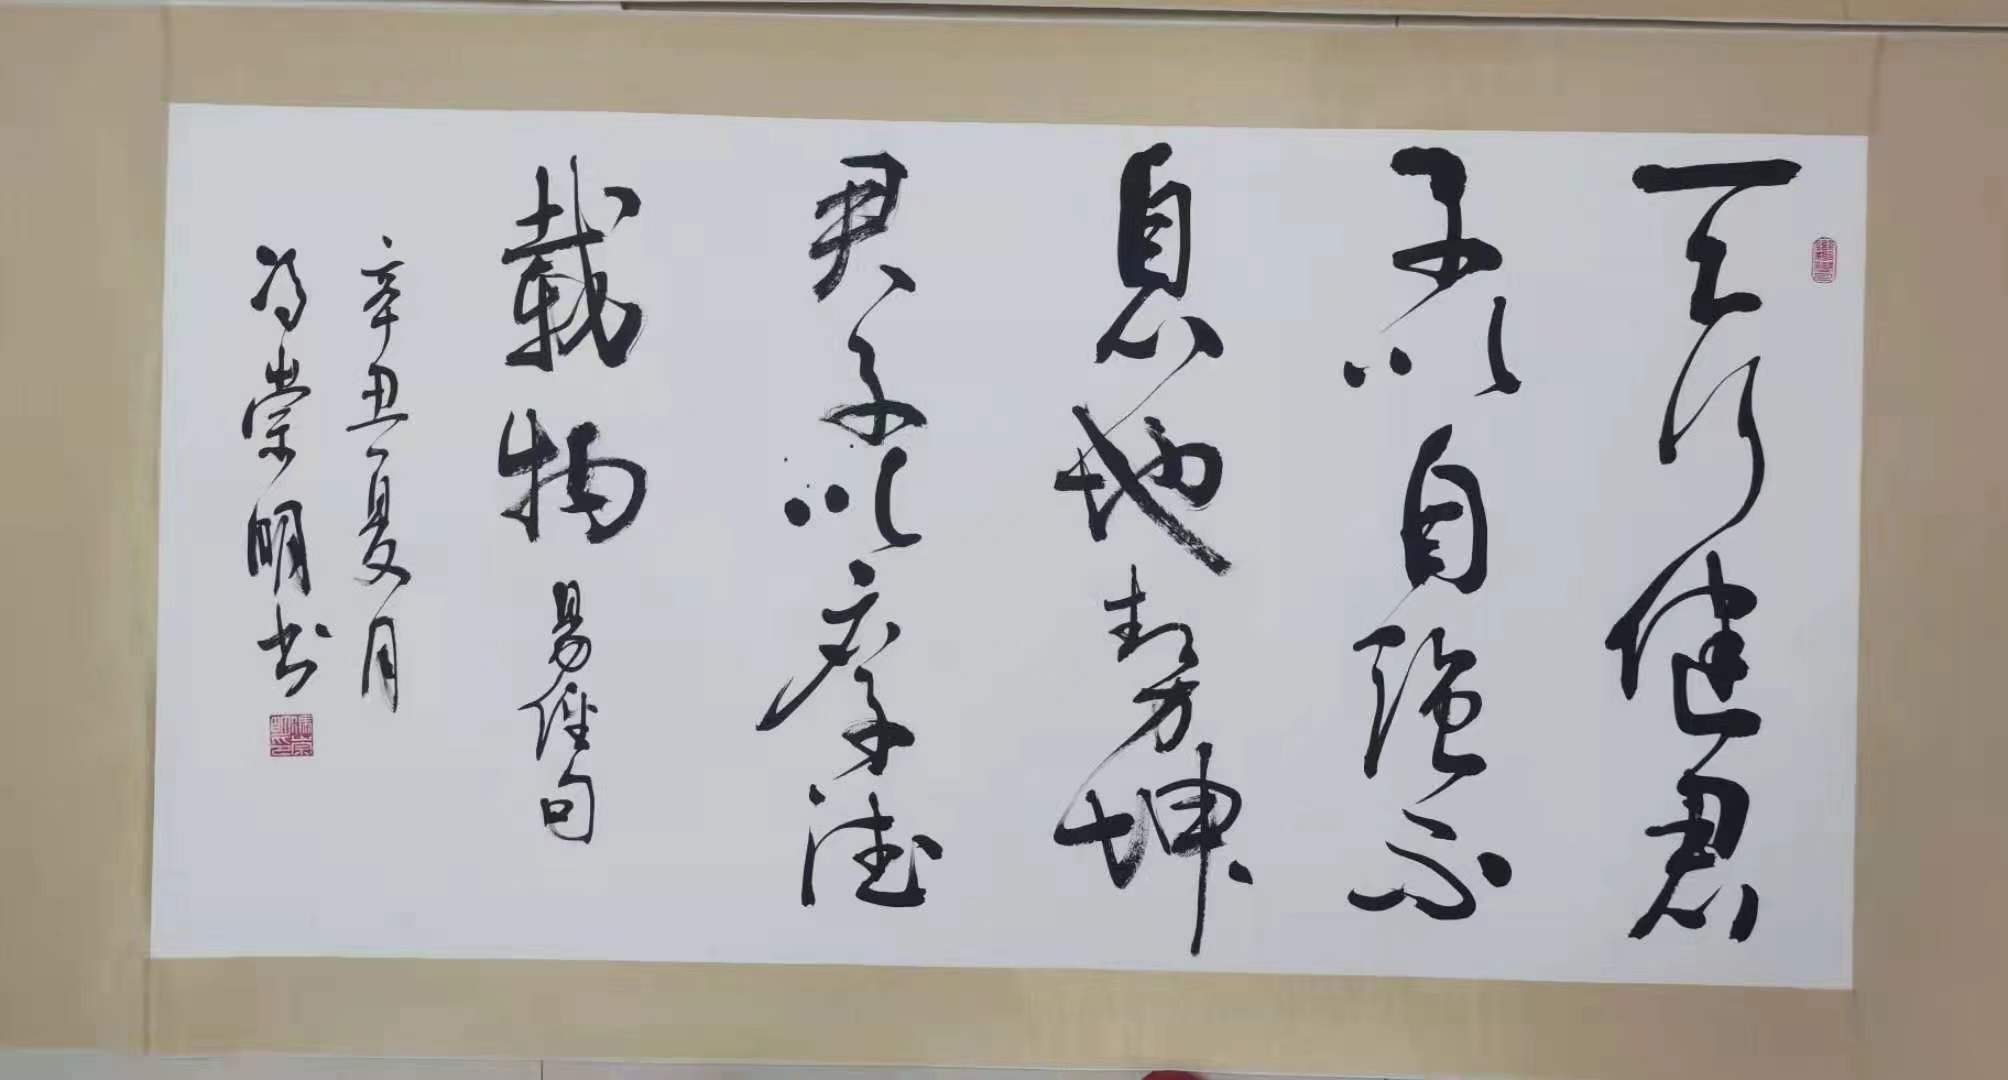 天行健君
子以自强不
息地势坤
君子以厚德
載物 易经句
辛丑夏月
冯崇明书